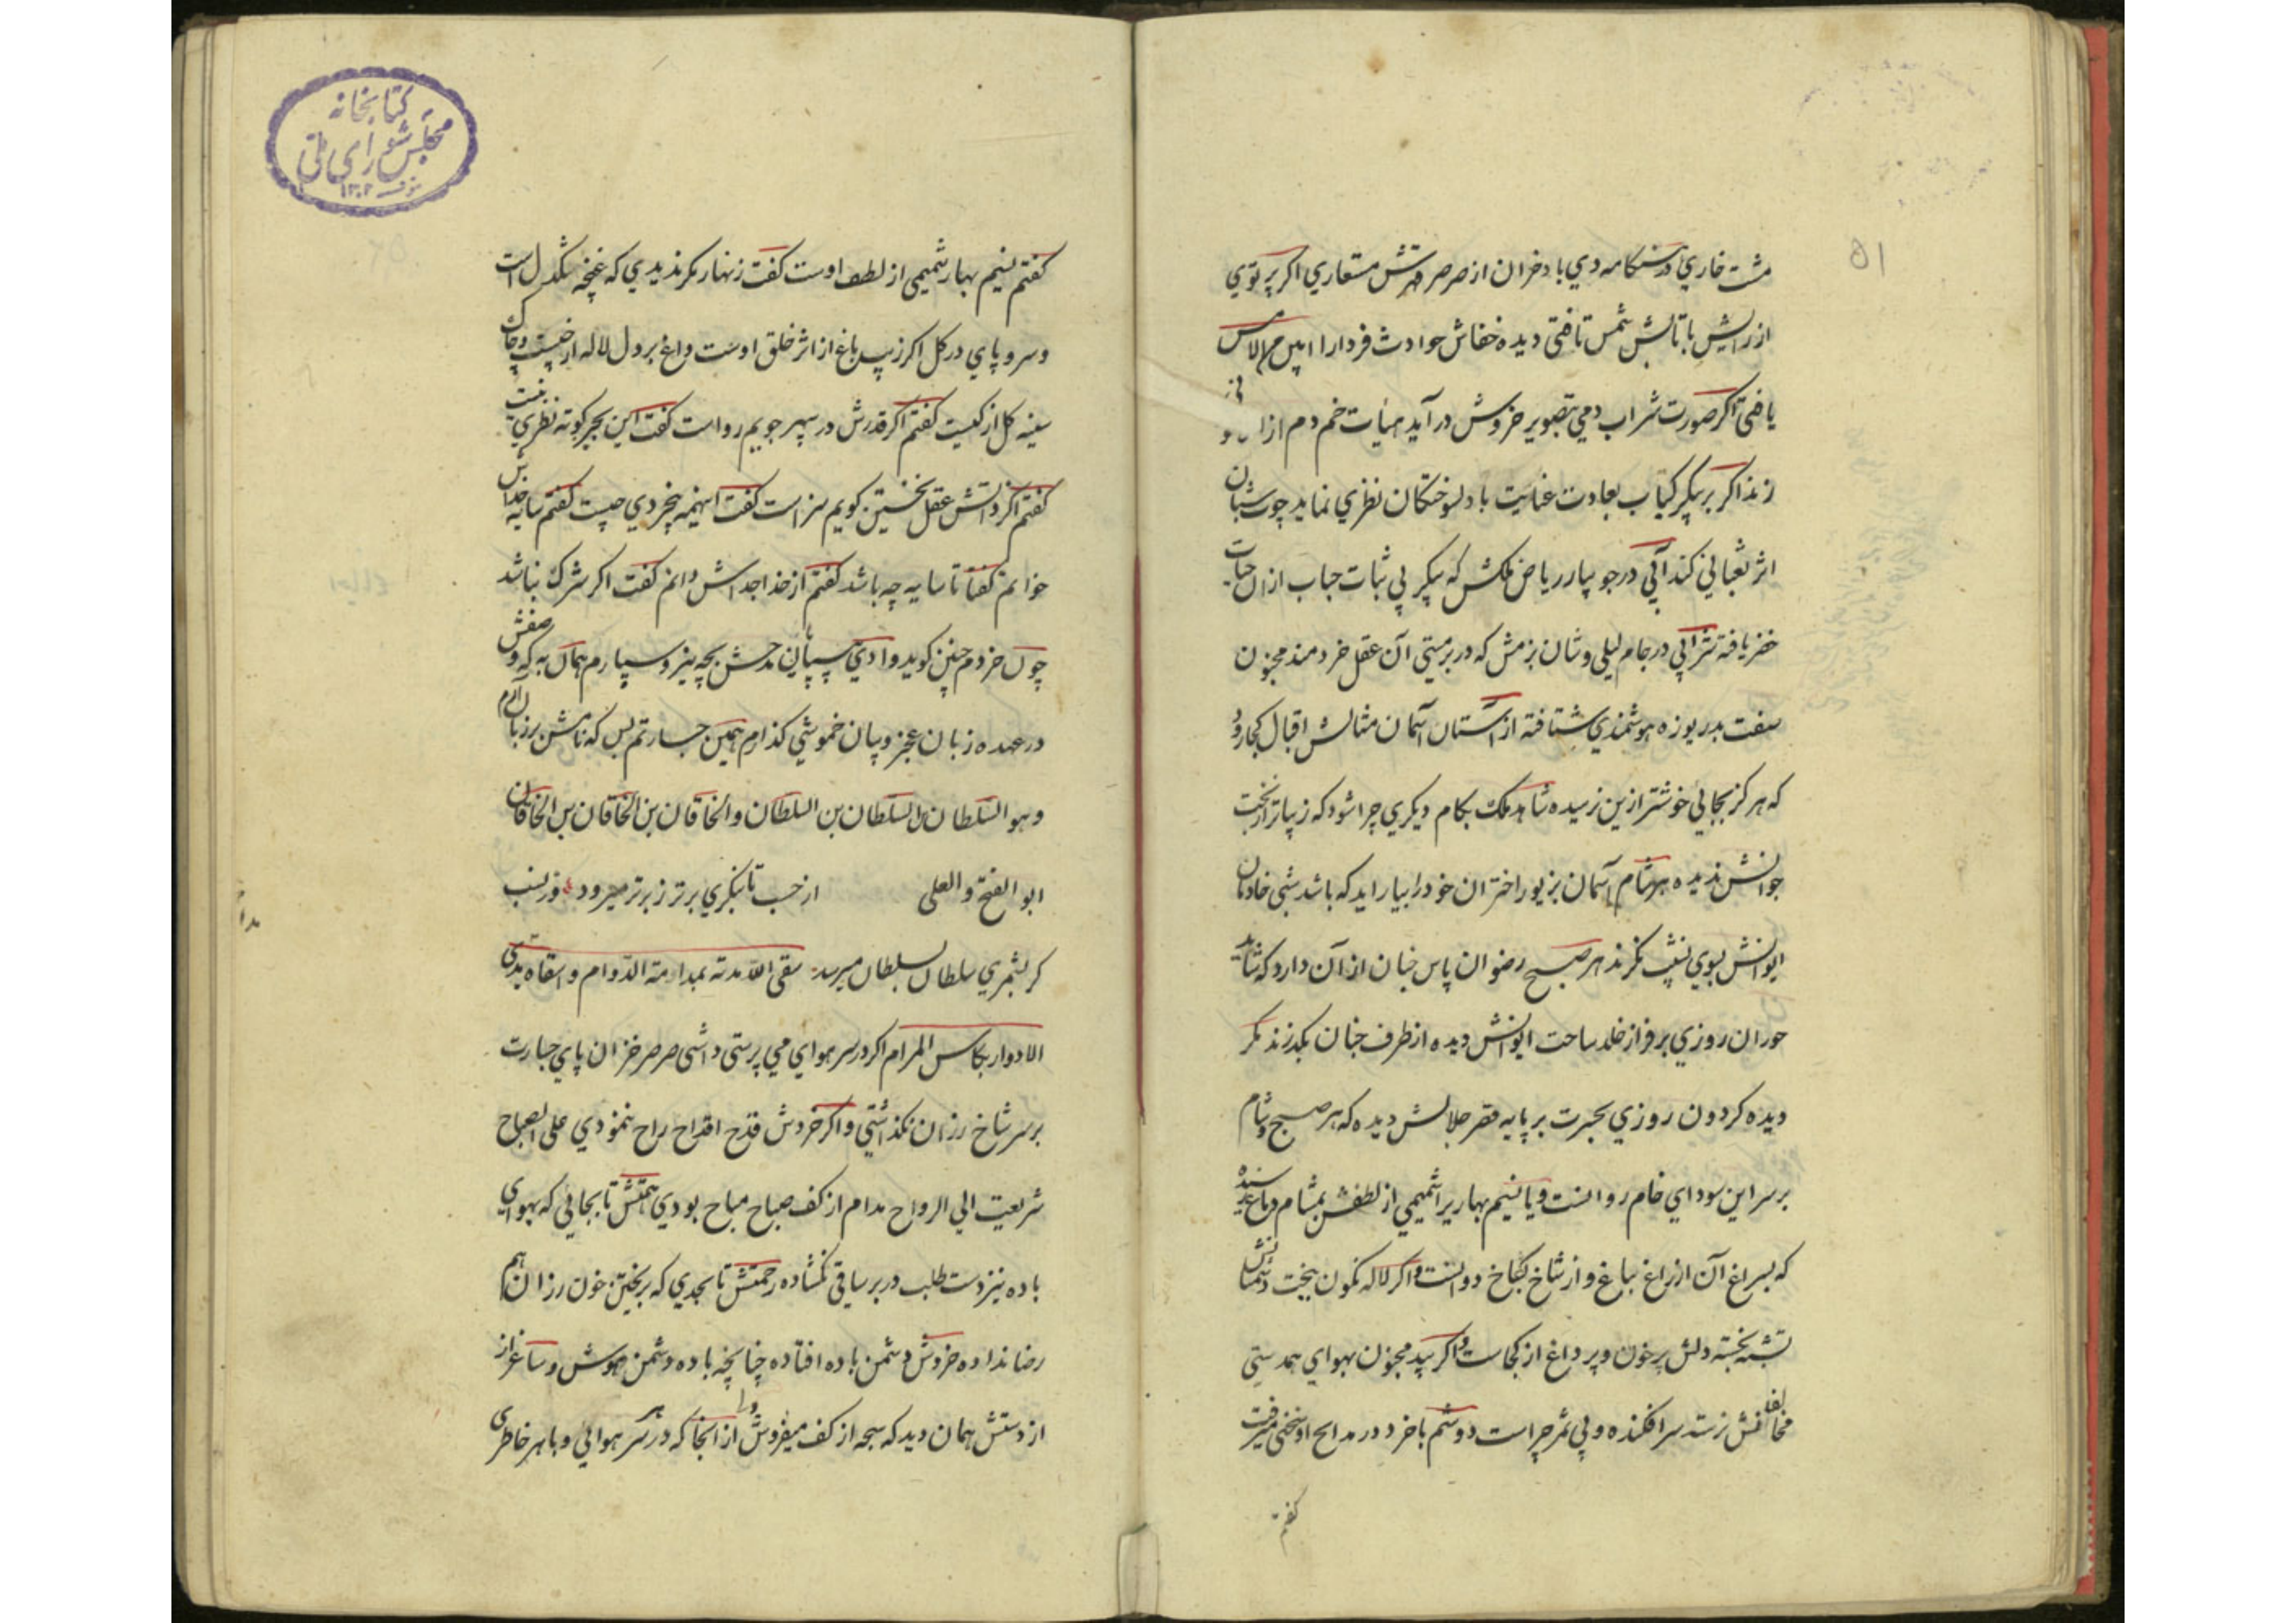 ۵۱
مشت خاری در هنگامه دی باد خزان از صرصر قهرش مستعاری اگر پرتوی
از رایش با تابش شمس تافتی دیده خفاش حوادث فردا را
یافتی اگر صورت شراب دمی بتصویر خروش در آید هیأت خم دم از
زند اگر بر پیکر کباب بعادت عنایت با دلسوختگان نظری نماید چوب شبان
اثر ثعبانی کند آبی در جویبار ریاض ملکش که پیکر بی ثبات حباب ازان حیات
خضر یافته شرابی در جام لیلی وشان بزمش که در برمستی آن عقل خردمند مجنون
صفت بدریوزه هوشمندی شتافته از آستان آسمان مثالش اقبال کجا رود
که هرگز بجایی خوشتر ازین نرسیده شاهد ملک بکام دیگری چرا شود که زیباتر از بخت
جوانش ندیده هر شام آسمان بزیور اختران خود را بیاراید که باشد شبی خادمان
ایوانش بسوی نشیب نگرند هر صبح رضوان پاس جنان از آن دارد که شاید
حوران روزی بر فراز خلد ساحت ایوانش دیده از طرف جنان بگذرند مگر
دیده گردون روزی بحیرت بر پایه قصر جلالش دیده که هر صبح و شام
بر سر این سودای خام روانست و یا نسیم بهار یرا شمیمی از لطفش بمشام دماغ رسیده
که بسراغ آن از راغ بباغ و از شاخ بکاخ دوانست و اگر لاله نگون بخت دشمنانش
نشبه بخسته دلش پر خون و پر داغ از کجاست و اگر بید مجنون بهوای همدستی
مخالفانش نرسته سرافکنده و بی ثمر چراست دوشم با خرد در مدایح او سخنی میرفت
گفتم
کتابخانه
مجلس شورای ملی
۱۳۰۲
گفتم نسیم بهار شمیمی از لطف اوست گفت زنهار مگر ندیدی که غنچه تنگدل است
و سرو پای در گل اگر زیب باغ از اثر خلق اوست داغ بر دل لاله از چیست و چاک
سینه گل از کیست گفتم اگر قدرش در سپهر جویم رواست گفت این بجز کوته نظری نیست
گفتم اگر ذاتش عقل نخستین گویم سزاست گفت اینهمه بیخردی چیست گفتم سایه خداش
خوانم گفتا تا سایه چه باشد گفتم از خدا جداش دانم گفت اگر شرک نباشد
چون خردم چنین گوید وادی بی پایان مدحش بچه نیرو سپارم همان به که وصفش
در عهده زبان عجز و بیان خموشی گذارم همین جسارتم بس که نامش بر زبان آرم
وهو السلطان بن السلطان بن السلطان والخاقان بن الخاقان بن الخاقان
ابو الفتح والعلی از حسب تا بنگری برتر ز برتر میرود ور نسب
گر بشمری سلطان بسلطان میرسد سقی الله مدته بمدامة الدوام و اسقاه بیدی
الادوار بکاس المرام اگر در سر هوای می پرستی داشتی صرصر خزان پای جسارت
بر سر شاخ رزان نگذاشتی و اگر خردش قدح اقداح راح ننمودی علی الصباح
شریعت الی الرواح مدام از کف صباح مباح بودی همتش تا بجائی که بهوای
باده نیز دست طلب در بر ساقی نگشاده رحمتش تا بحدی که بریختن خون رزان هم
رضا نداده خردش دشمن باده افتاده چنانچه باده دشمن هوش و ساغر از
از دستش همان دید که سبحه از کف میفروش ولی از آنجا که در هر سر هوائی و با هر خاطری